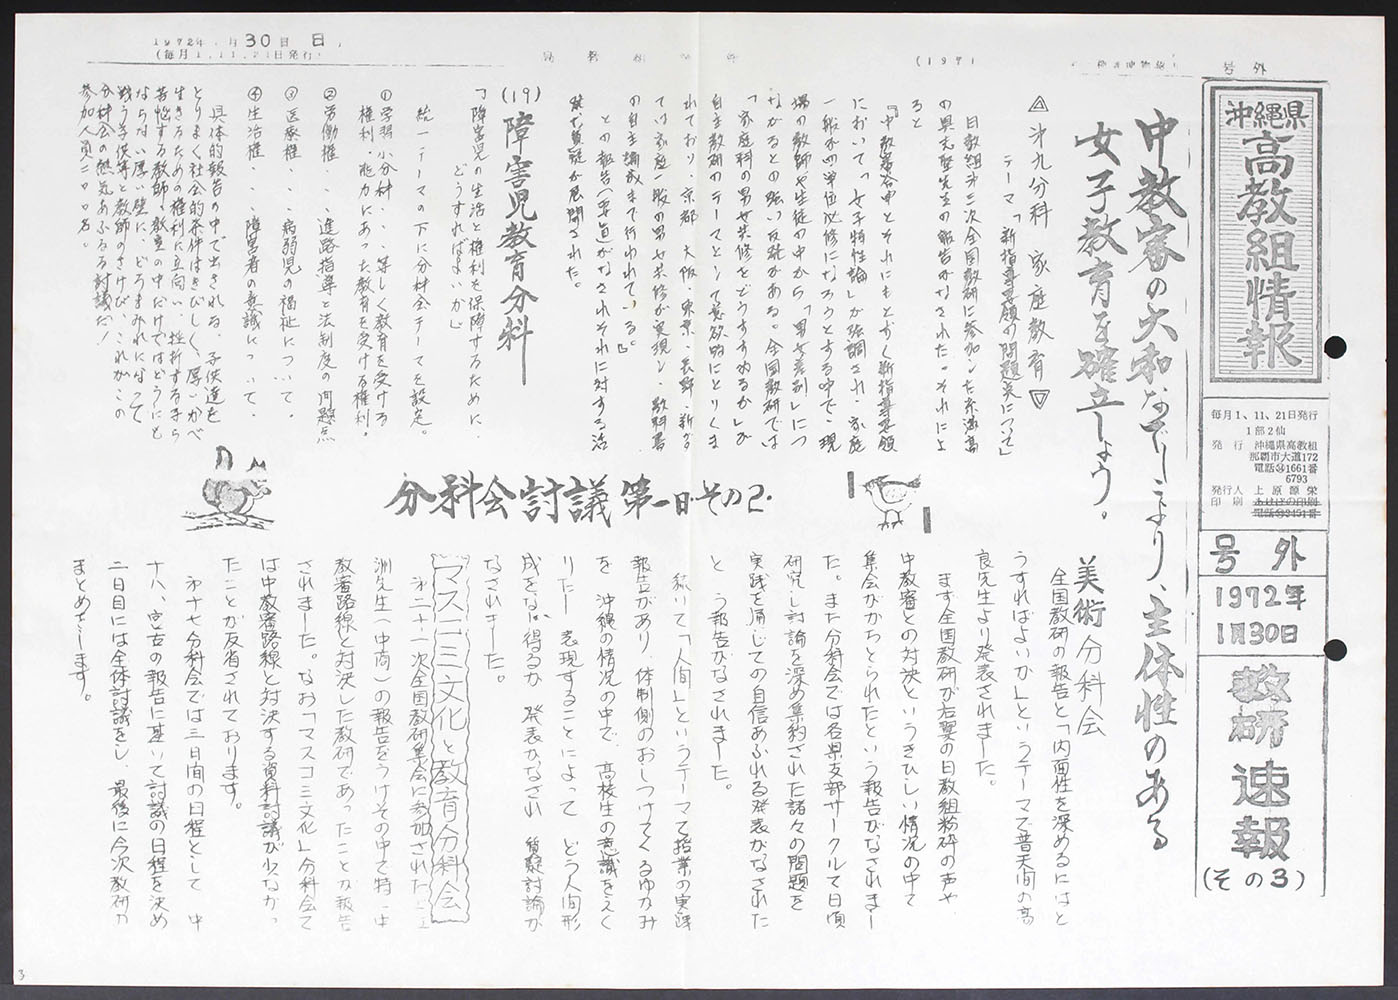 1972年 月30日 日
(毎月1、11、21日発行)
号外
沖縄県
高教組情報
毎月1、11、21日発行
1部2仙
発行 沖縄県高教組
那覇市大道172
電話 1661番
6793
発行人 上原源栄
印刷 あけぼの印刷
号外
1972年
1月30日
教研速報
(その3)
中教審の大和なでしこより、主体性のある
女子教育を確立しよう。
△才九分科 家庭教育▽
テーマ「新指導要領の問題点について」
日教組第二次全国教研に参加した糸満高
の具志堅先生の報告がなされた。それによ
ると
『中教審答申とそれにもとずく新指導要領
において「女子特性論」が強調され、家庭
一般が四単位必修になろうとする中で、現
場の教師や生徒の中から「男女差別」につ
ながるとの強い反発がある。全国教研では
「家庭科の男女共修をどうすすめるか」が
自主教研のテーマとして意欲的にとりくま
れており、京都、大阪、東京、長野、新潟
では家庭一般の男女共修が実現し、教科書
の自主編成まで行われている。』
との報告(要旨)がなされそれに対する活
発な質疑が展開された。
(19)障害児教育分科
「障害児の生活と権利を保障するために、
どうすればよいか」
統一テーマの下に分科会テーマを設定。
①学習小分科・・等しく教育を受ける
権利、能力にあった教育を受ける権利。
②労働権・・・進路指導と法制度の問題点
③医療権・・・病弱児の福祉について。
④生活権・・・障害者の意識について、
具体的報告の中で出される、子供達を
とりまく社会的条件はきびしく、厚いかべ
生きるための権利に立向い、挫折するまら
苦悩する教師、教室の中だけではどうにも
ならない厚い壁に、どろまみれになって
戦う子供等と教師のさけび、これがこの
分科会の熱気あふるる討議だ!
参加人員二〇〇名。
分科会討議 第一日その2.
美術分科会
全国教研の報告と「内面性を深めるにはど
うすればよいか」というテーマで普天間の高
良先生より発表されました。
まず全国教研が右翼の日教組粉砕の声や
中教審との対決というきびしい情況の中で
集会がかちとられたという報告がなされまし
た。また分科会では各県支部サークルで日頃
研究し討論を深め集約された諸々の問題を
実践を通じての自信あふれる発表がなされた
という報告がなされました。
続いて「人間」というテーマで授業の実践
報告があり、体制側のおしつけてくるゆがみ
を沖縄の情況の中で、高校生の意識をえぐ
りだし表現することによってどう人間形
成をなし得るか発表がなされ質疑討論が
なされました。
マスコミ文化と教育分科会
才二十一次全国教研集会に参加された
洲先生(中商)の報告をうけその中で特に中
教審路線と対決した教研であったことが報告
されました。なお「マスコミ文化」分科会で
は中教審路線と対決する資料討議が少なかっ
たことが反省されております。
才十七分科会では三日間の日程として 中
十八、宮古の報告に基いて討議の日程を決め
二日目には全体討議をし、最後に今次教研の
まとめをします。
3